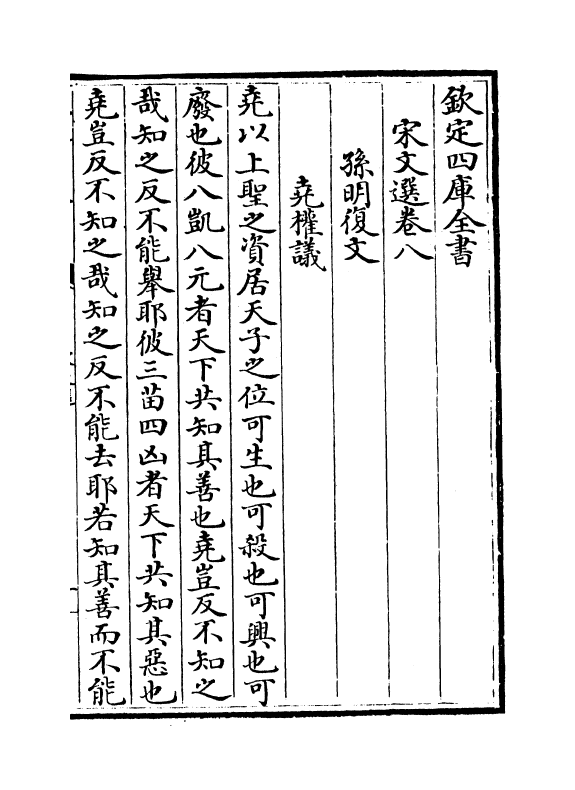 欽定四庫全書
宋文選卷八
孫明復文
堯權議
堯以上聖之資居天子之位可生也可殺也可興也可
廢也彼八凱八元者天下共知其善也堯豈反不知之
哉知之反不能舉耶彼三苗四凶者天下共知其惡也
堯豈反不知之哉知之反不能去耶若知其善而不能